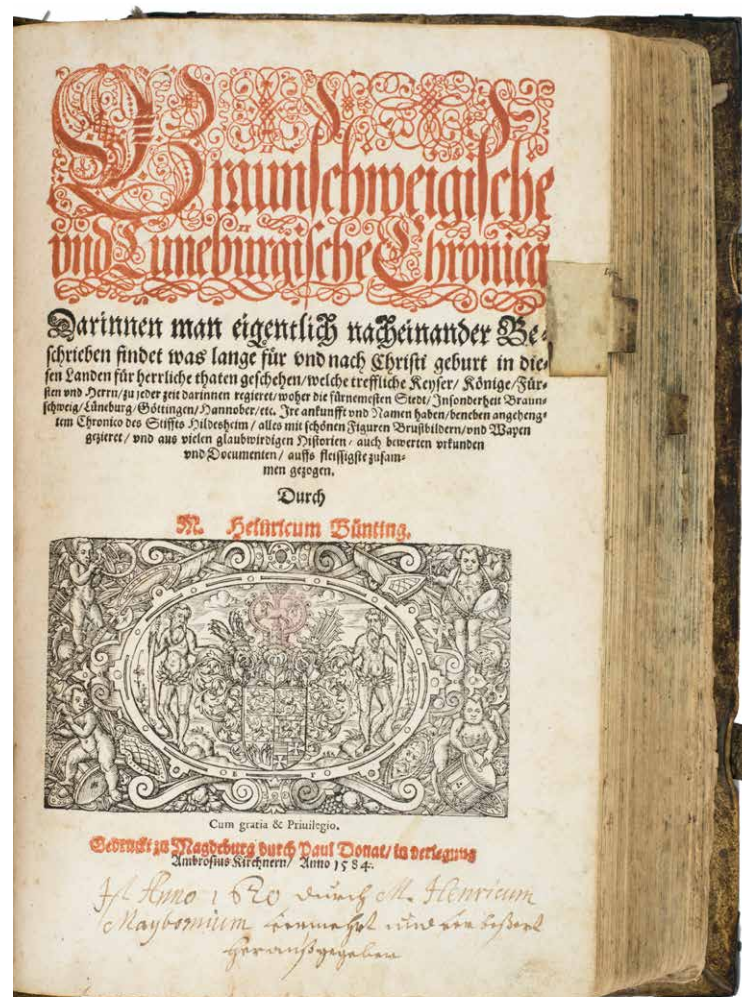 Braunschweigische
vnd Lüneburgische Chronica
Darinnen man eigentlich nacheinander Be-
schrieben findet was lange für vnd nach Christi geburt in die-
sen Landen für herrliche thaten geschehen/welche treffliche Keyser/ Könige/Für-
sten vnd Herrn/zu jeder zeit darinnen regieret/woher die fürnemesten Stedt/ Insonderheit Braun-
schweig/Lüneburg/Göttingen/Hannober/etc. Ire ankunfft vnd Namen haben/beneben angeheng-
tem Chronico des Stiffts Hildesheim/ alles mit schönen Figuren Brustbildern/vnd Wapen
gezieret/ vnd aus vielen glaubwirdigen Historien/ auch bewerten vrkunden
vnd Documenten/ auffs fleissigste zusam-
men gezogen.
Durch
M. Heinricum Bünting.
Cum gratia & Priuilegio.
Gedruckt zu Magdeburg durch Paul Donat/ in verlegung
Ambrosius Kirchnern/ Anno 1584.
Ist Anno 1620 durch M. Henricum
Maybomium vermehrt und verbeßert
heraußgegeben